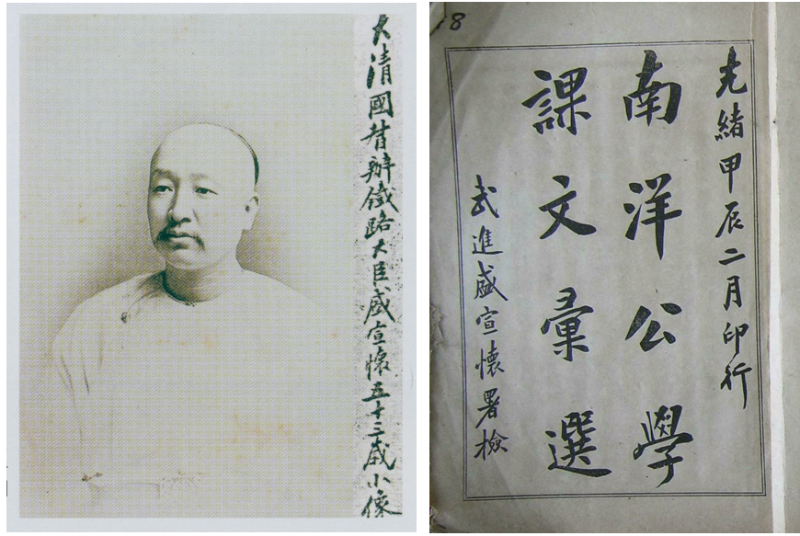 大清國督辦鐵路大臣盛宣懷五十三歲小像
8
光緒甲辰二月印行
南洋公學
課文彙選
武進盛宣懷署檢